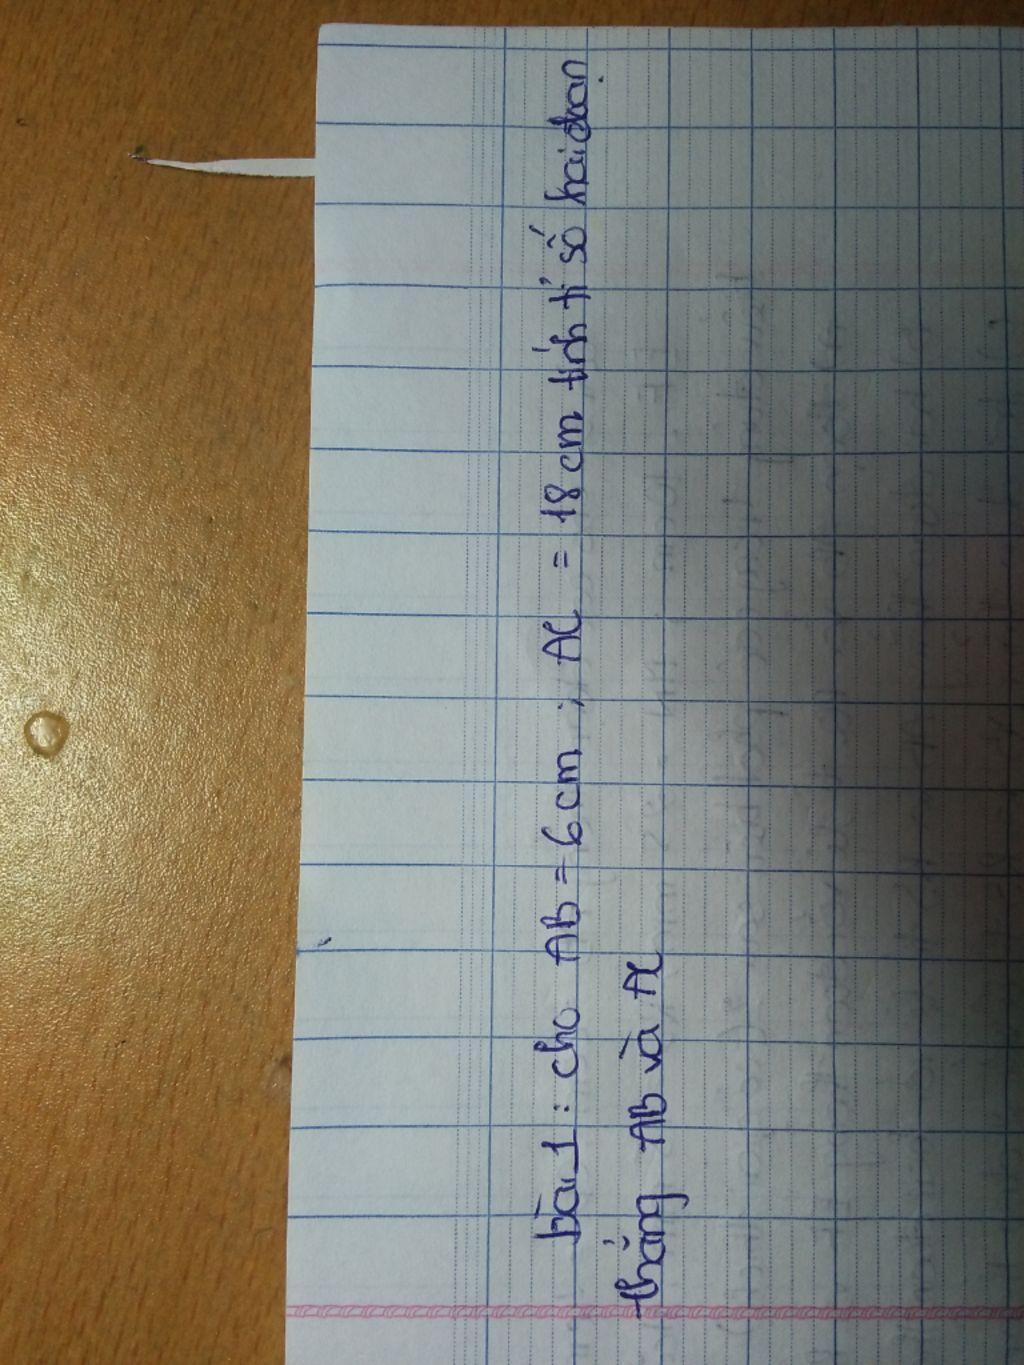 bài 1: cho AB = 6cm; AC = 18 cm tính tỉ số hai đoạn
thẳng AB và AC